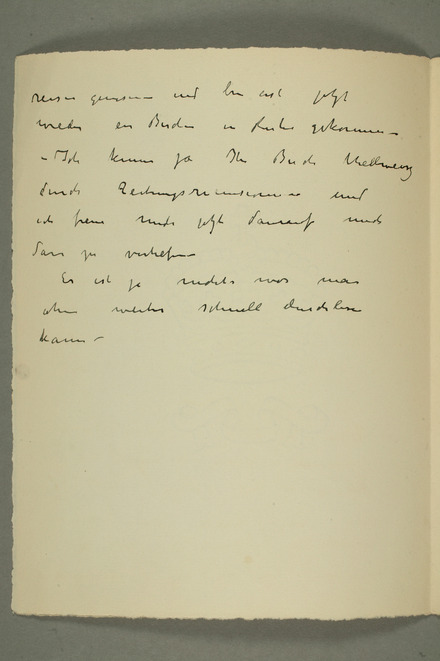 reisen gewesen und bin erst jetzt
wieder in Berlin in Ruhe gekommen –
– Ich kenne ja Ihr Buch
durch Zeitungsrezensionen und
ich freue mich jetzt darauf mich
darin zu vertiefen –
Es ist ja nichts was man
ohne weiter schnell durchlesen
kann –